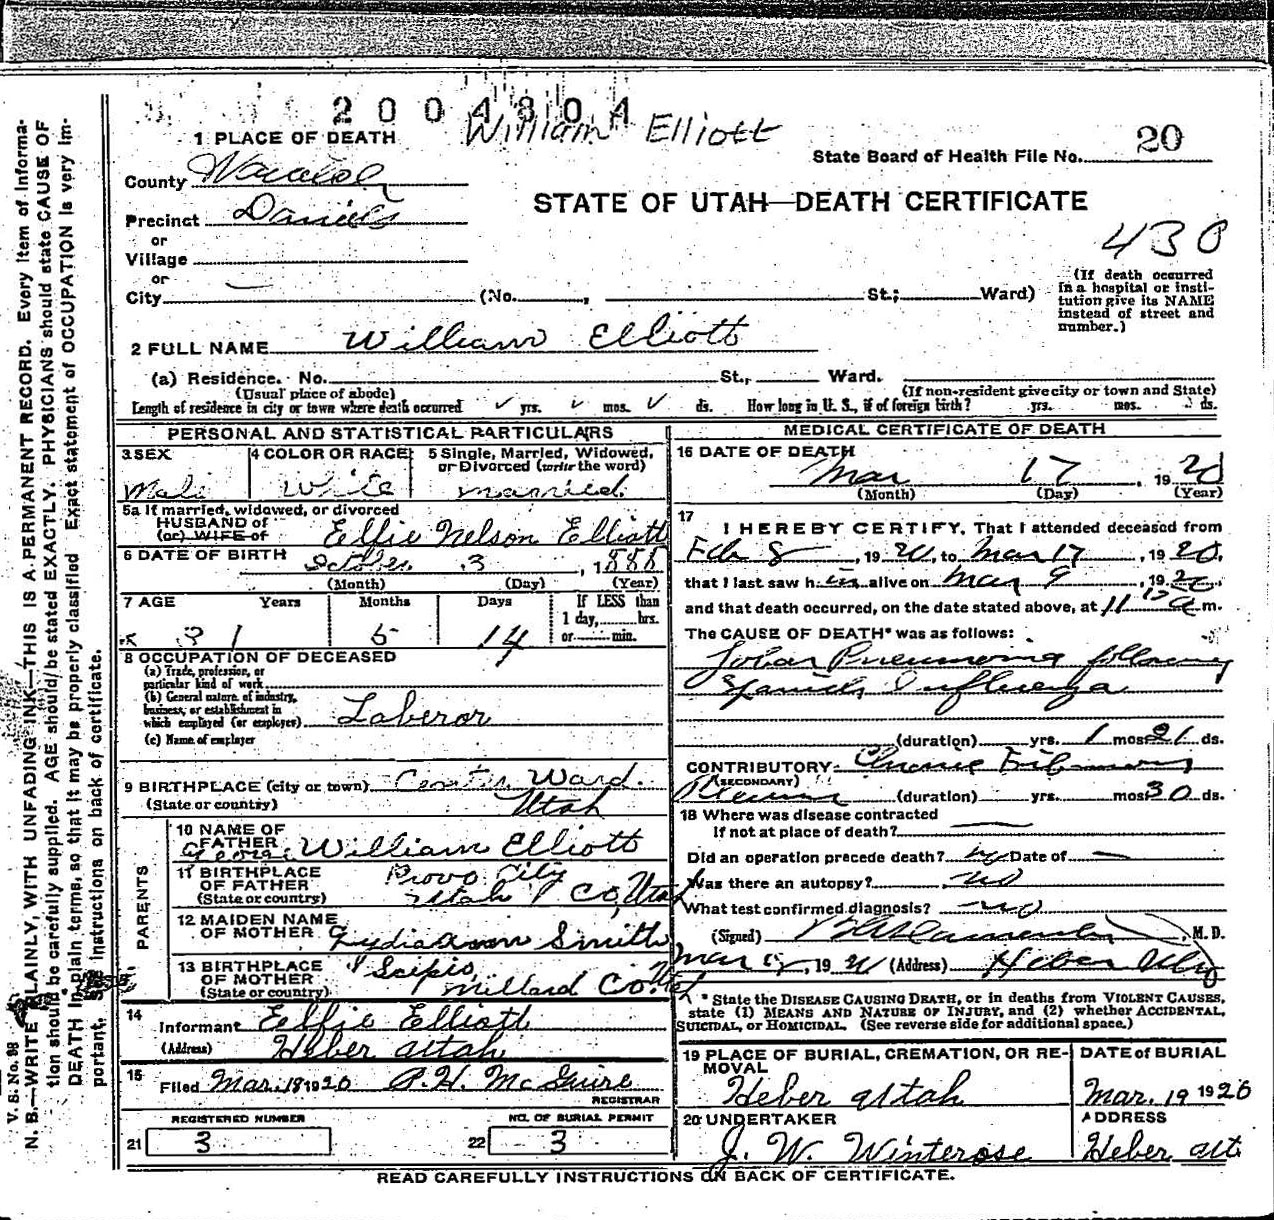 2004804
William Elliott
1 PLACE OF DEATH
State Board of Health File No. 20
County Wasatch
STATE OF UTAH—DEATH CERTIFICATE
Precinct Daniels
or
Village
430
or
City (No. , St.; Ward)
(If death occurred
in a hospital or insti-
tution give its NAME
instead of street and
number.)
2 FULL NAME William Elliott
(a) Residence. No. St., Ward.
(Usual place of abode) (If non-resident give city or town and State)
Length of residence in city or town where death occurred yrs. mos. ds. How long in U. S., if of foreign birth? yrs. mos. ds.
PERSONAL AND STATISTICAL PARTICULARS
3 SEX 4 COLOR OR RACE 5 Single, Married, Widowed,
or Divorced (write the word)
Male White Married
5a If married, widowed, or divorced
HUSBAND of
(or) WIFE of Elfie Nelson Elliott
6 DATE OF BIRTH October 3, 1888
(Month) (Day) (Year)
7 AGE Years Months Days If LESS than
1 day, hrs.
or min.
31 5 14
8 OCCUPATION OF DECEASED
(a) Trade, profession, or
particular kind of work
(b) General nature of industry,
business, or establishment in
which employed (or employer) Laberor
(c) Name of employer
9 BIRTHPLACE (city or town) Center Ward.
(State or country) Utah
PARENTS
10 NAME OF
FATHER George William Elliott
11 BIRTHPLACE
OF FATHER Provo City
(State or country) Utah Co, Utah
12 MAIDEN NAME
OF MOTHER Lydiaann Smith
13 BIRTHPLACE
OF MOTHER Scipio,
(State or country) Millard Co. Utah
14
Informant Elfie Elliott
(Address) Heber Utah
15
Filed Mar. 18 1920 P. H. McGuire
REGISTRAR
REGISTERED NUMBER NO. OF BURIAL PERMIT
21 3 22 3
MEDICAL CERTIFICATE OF DEATH
16 DATE OF DEATH
Mar 17, 1920
(Month) (Day) (Year)
17
I HEREBY CERTIFY, That I attended deceased from
Feb 8, 1920, to Mar 17, 1920,
that I last saw him alive on Mar 9, 1920
and that death occurred, on the date stated above, at 11 a m.
The CAUSE OF DEATH* was as follows:
Lobar Pneumonia following
Spanish Influenza
(duration) yrs. 1 mos. 21 ds.
CONTRIBUTORY Chronic Fibrinous
(SECONDARY)
(duration) yrs. mos. 30 ds.
18 Where was disease contracted
If not at place of death?
Did an operation precede death? no Date of
Was there an autopsy? no
What test confirmed diagnosis? no
(Signed) , M. D.
Mar , 19 20 (Address) Heber Utah
* State the DISEASE CAUSING DEATH, or in deaths from VIOLENT CAUSES,
state (1) MEANS AND NATURE OF INJURY, and (2) whether ACCIDENTAL,
SUICIDAL, or HOMICIDAL. (See reverse side for additional space.)
19 PLACE OF BURIAL, CREMATION, OR RE-
MOVAL
Heber Utah
DATE of BURIAL
Mar. 19 1920
20 UNDERTAKER
J. W. Winterose
ADDRESS
Heber Ut.
READ CAREFULLY INSTRUCTIONS ON BACK OF CERTIFICATE.
V. S. No. 98
N. B.—WRITE PLAINLY, WITH UNFADING INK—THIS IS A PERMANENT RECORD. Every item of informa-
tion should be carefully supplied. AGE should be stated EXACTLY. PHYSICIANS should state CAUSE OF
DEATH in plain terms, so that it may be properly classified. Exact statement of OCCUPATION is very im-
portant. See instructions on back of certificate.